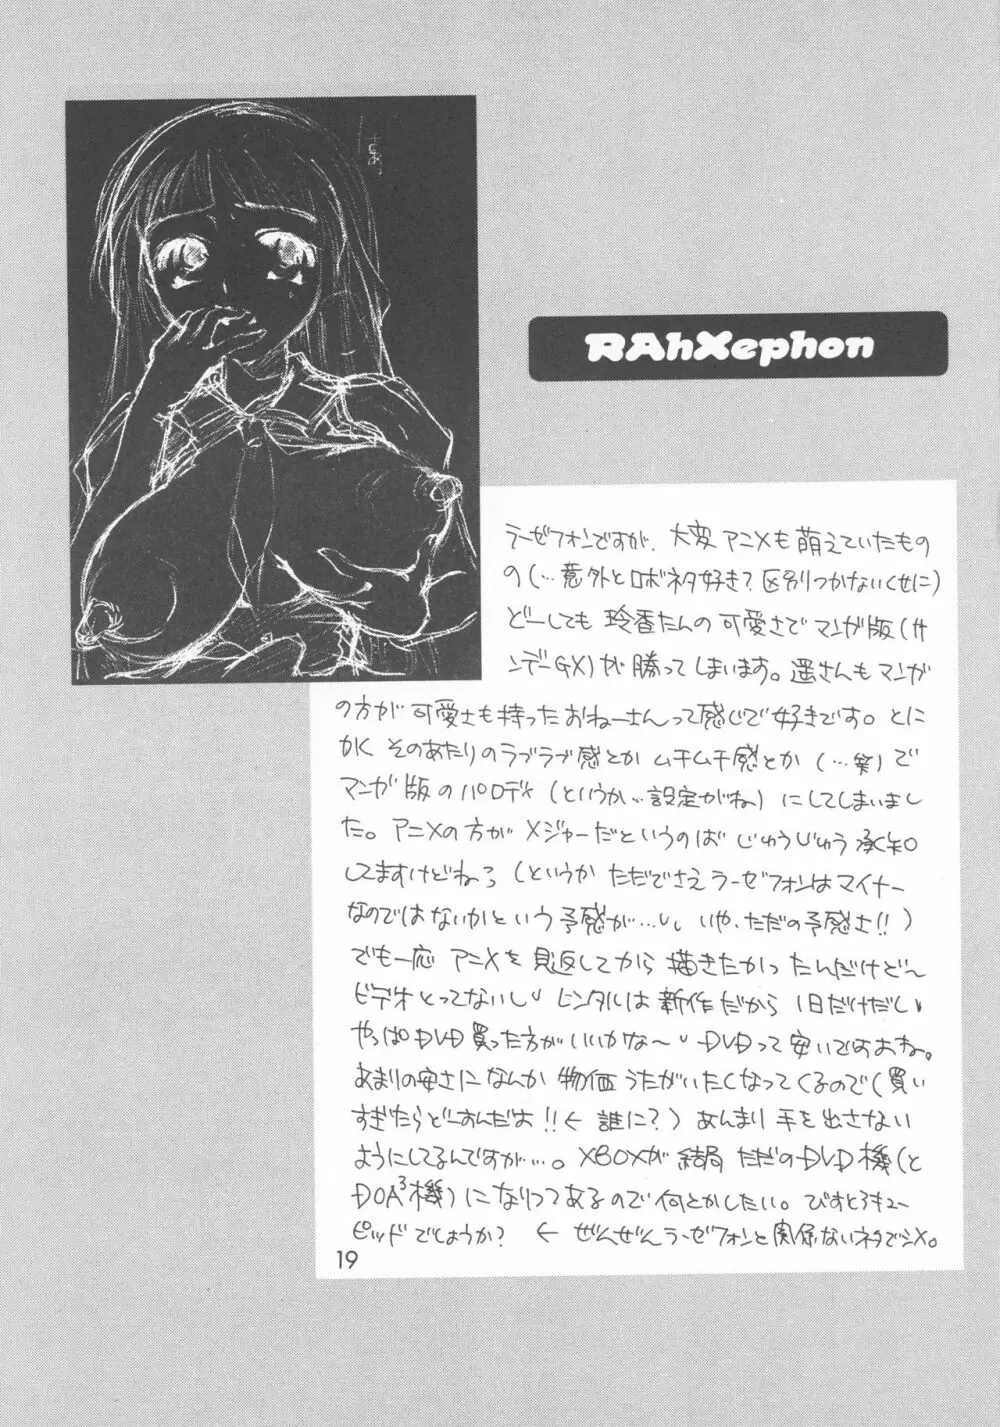 RAhXephon
ラーゼフォンですが、大変アニメも萌えていたもの
の(…意外とロボネタ好き?区別つかないくせに)
どーしても 玲香たんの可愛さでマンガ版(サ
ンデーGX)が勝ってしまいます。遥さんもマンガ
の方が可愛さも持ったおねーさんって感じで好きです。とに
かく そのあたりのラブラブ感とか ムチムチ感とか(…笑)で
マンガ版のパロディ(というか…設定がね)にしてしまいまし
た。アニメの方がメジャーだというのは じゅうじゅう承知
してますけどねろ (というか ただでさえラーゼフォンはマイナー
なのではないかという予感が…いや、ただの予感さ!!)
でも一応 アニメを見返してから描きたかったんだけど〜
ビデオとってないし レンタルは新作だから 1日だけだし
やっぱDVD買った方がいいかな〜 DVDって安いですよね。
あまりの安さになんか 物価うたがいたくなってくるので(買い
すぎたらどーすんだよ!!←誰に?)あんまり手を出さない
ようにしてるんですが…。XBOXが結局ただのDVD機(と
DOA3機)になりつつあるので何とかしたい。びすとろキュー
ピッドでしょうか? ← ぜんぜんラーゼフォンと関係ないネタでシメ。
19